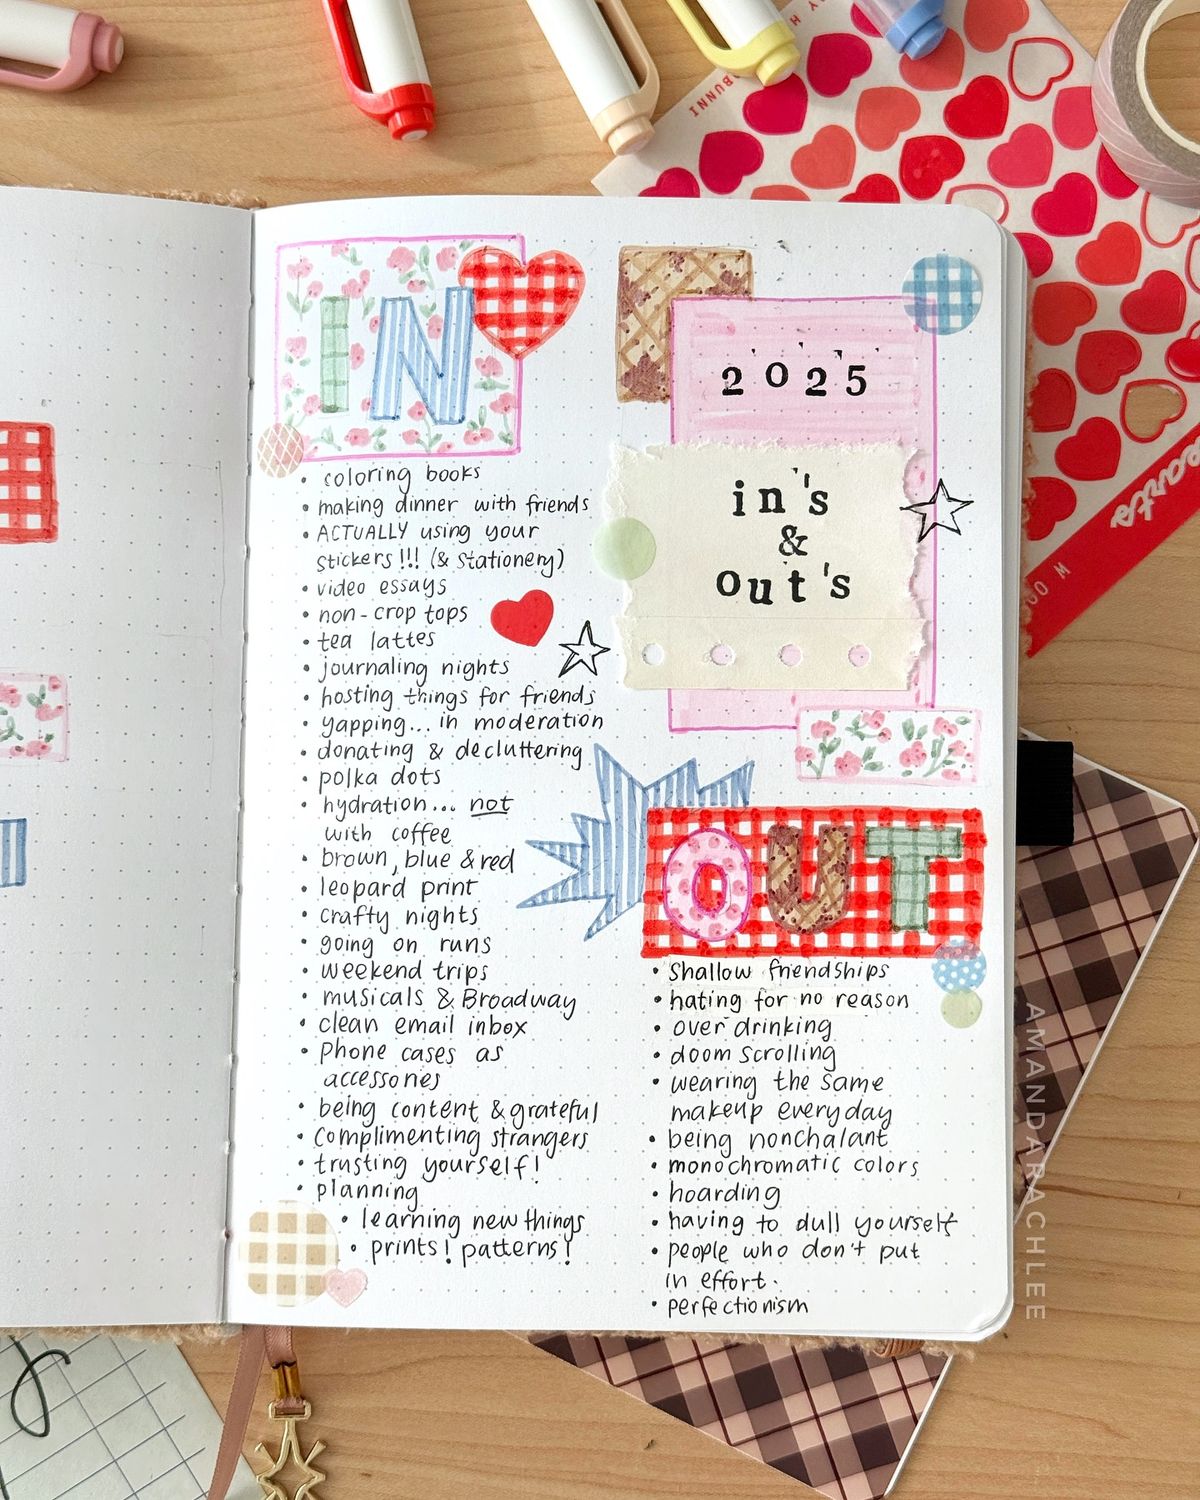 IN
• coloring books
• making dinner with friends
• ACTUALLY using your
stickers!!! (& stationery)
• video essays
• non-crop tops
• tea lattes
• journaling nights
• hosting things for friends
• yapping... in moderation
• donating & decluttering
• polka dots
• hydration... not
with coffee
• brown, blue & red
• leopard print
• crafty nights
• going on runs
• weekend trips
• musicals & Broadway
• clean email inbox
• phone cases as
accessories
• being content & grateful
• complimenting strangers
• trusting yourself!
• planning
• learning new things
• prints! patterns!
2025
in's
&
out's
OUT
• shallow friendships
• hating for no reason
• over drinking
• doom scrolling
• wearing the same
makeup everyday
• being nonchalant
• monochromatic colors
• hoarding
• having to dull yourself
• people who don't put
in effort.
• perfectionism
AMANDARACHLEE